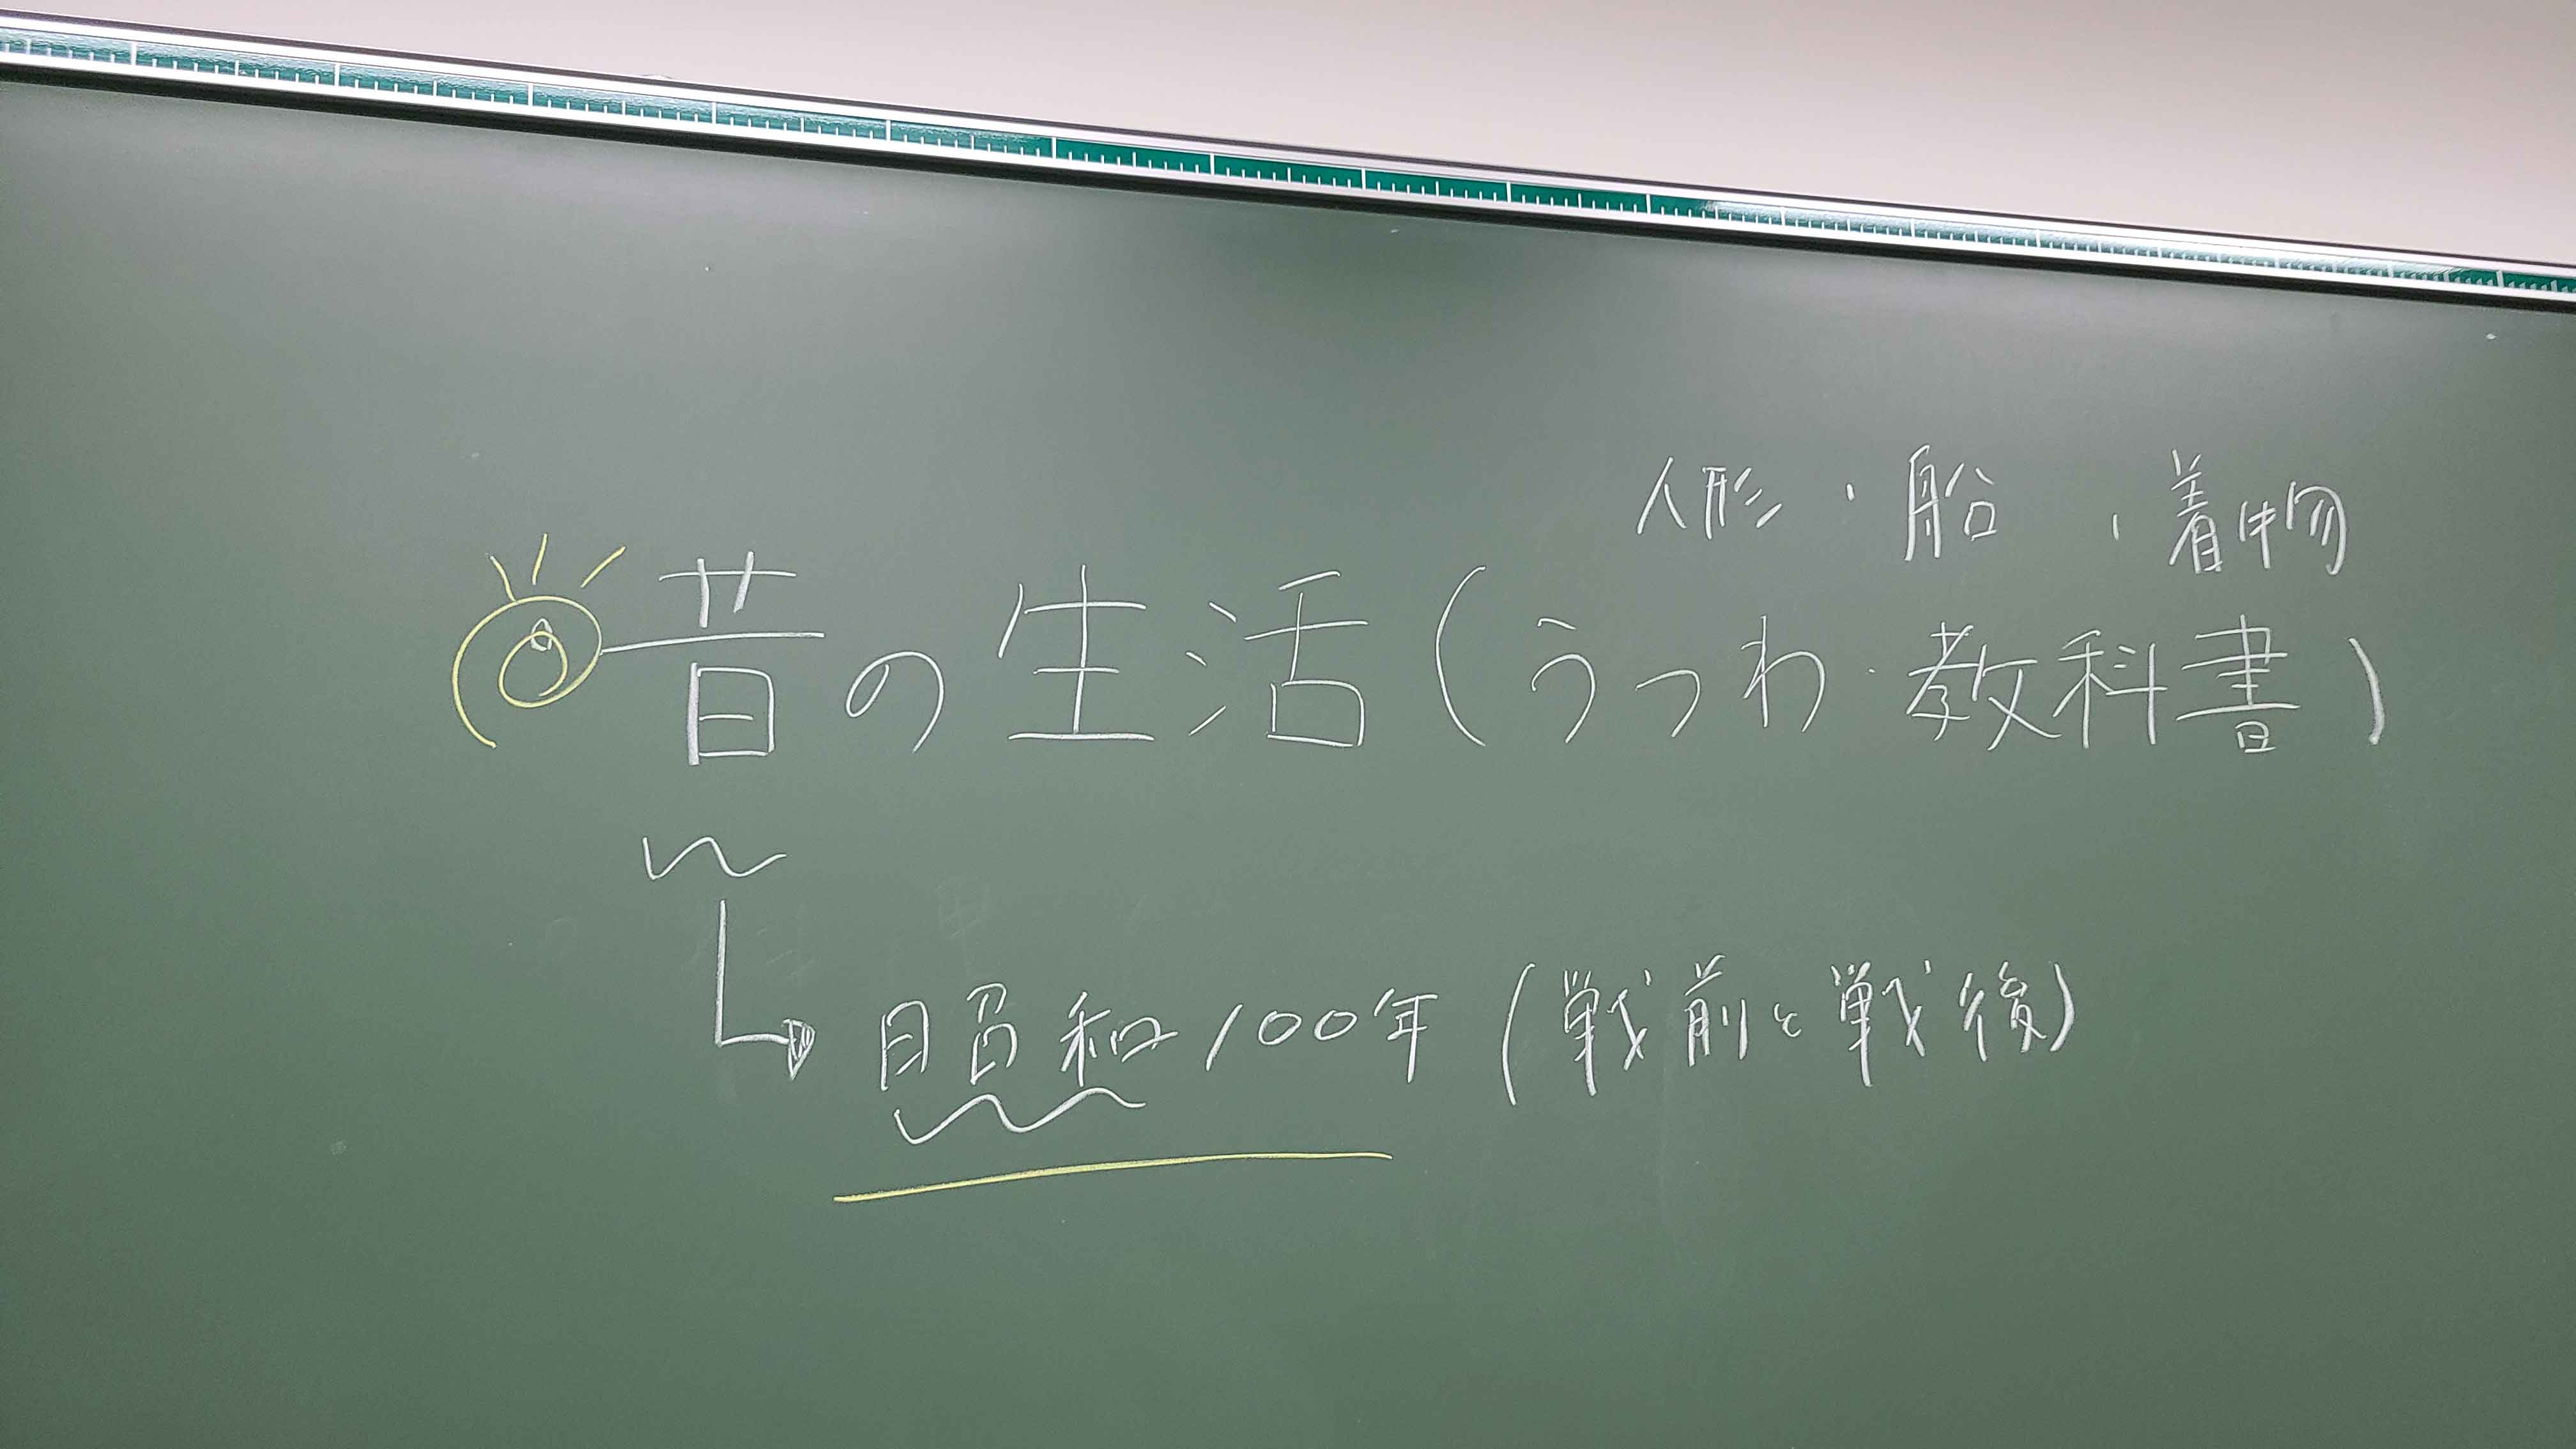 人形・船・着物
昔の生活(うつわ・教科書)
昭和100年(戦前と戦後)